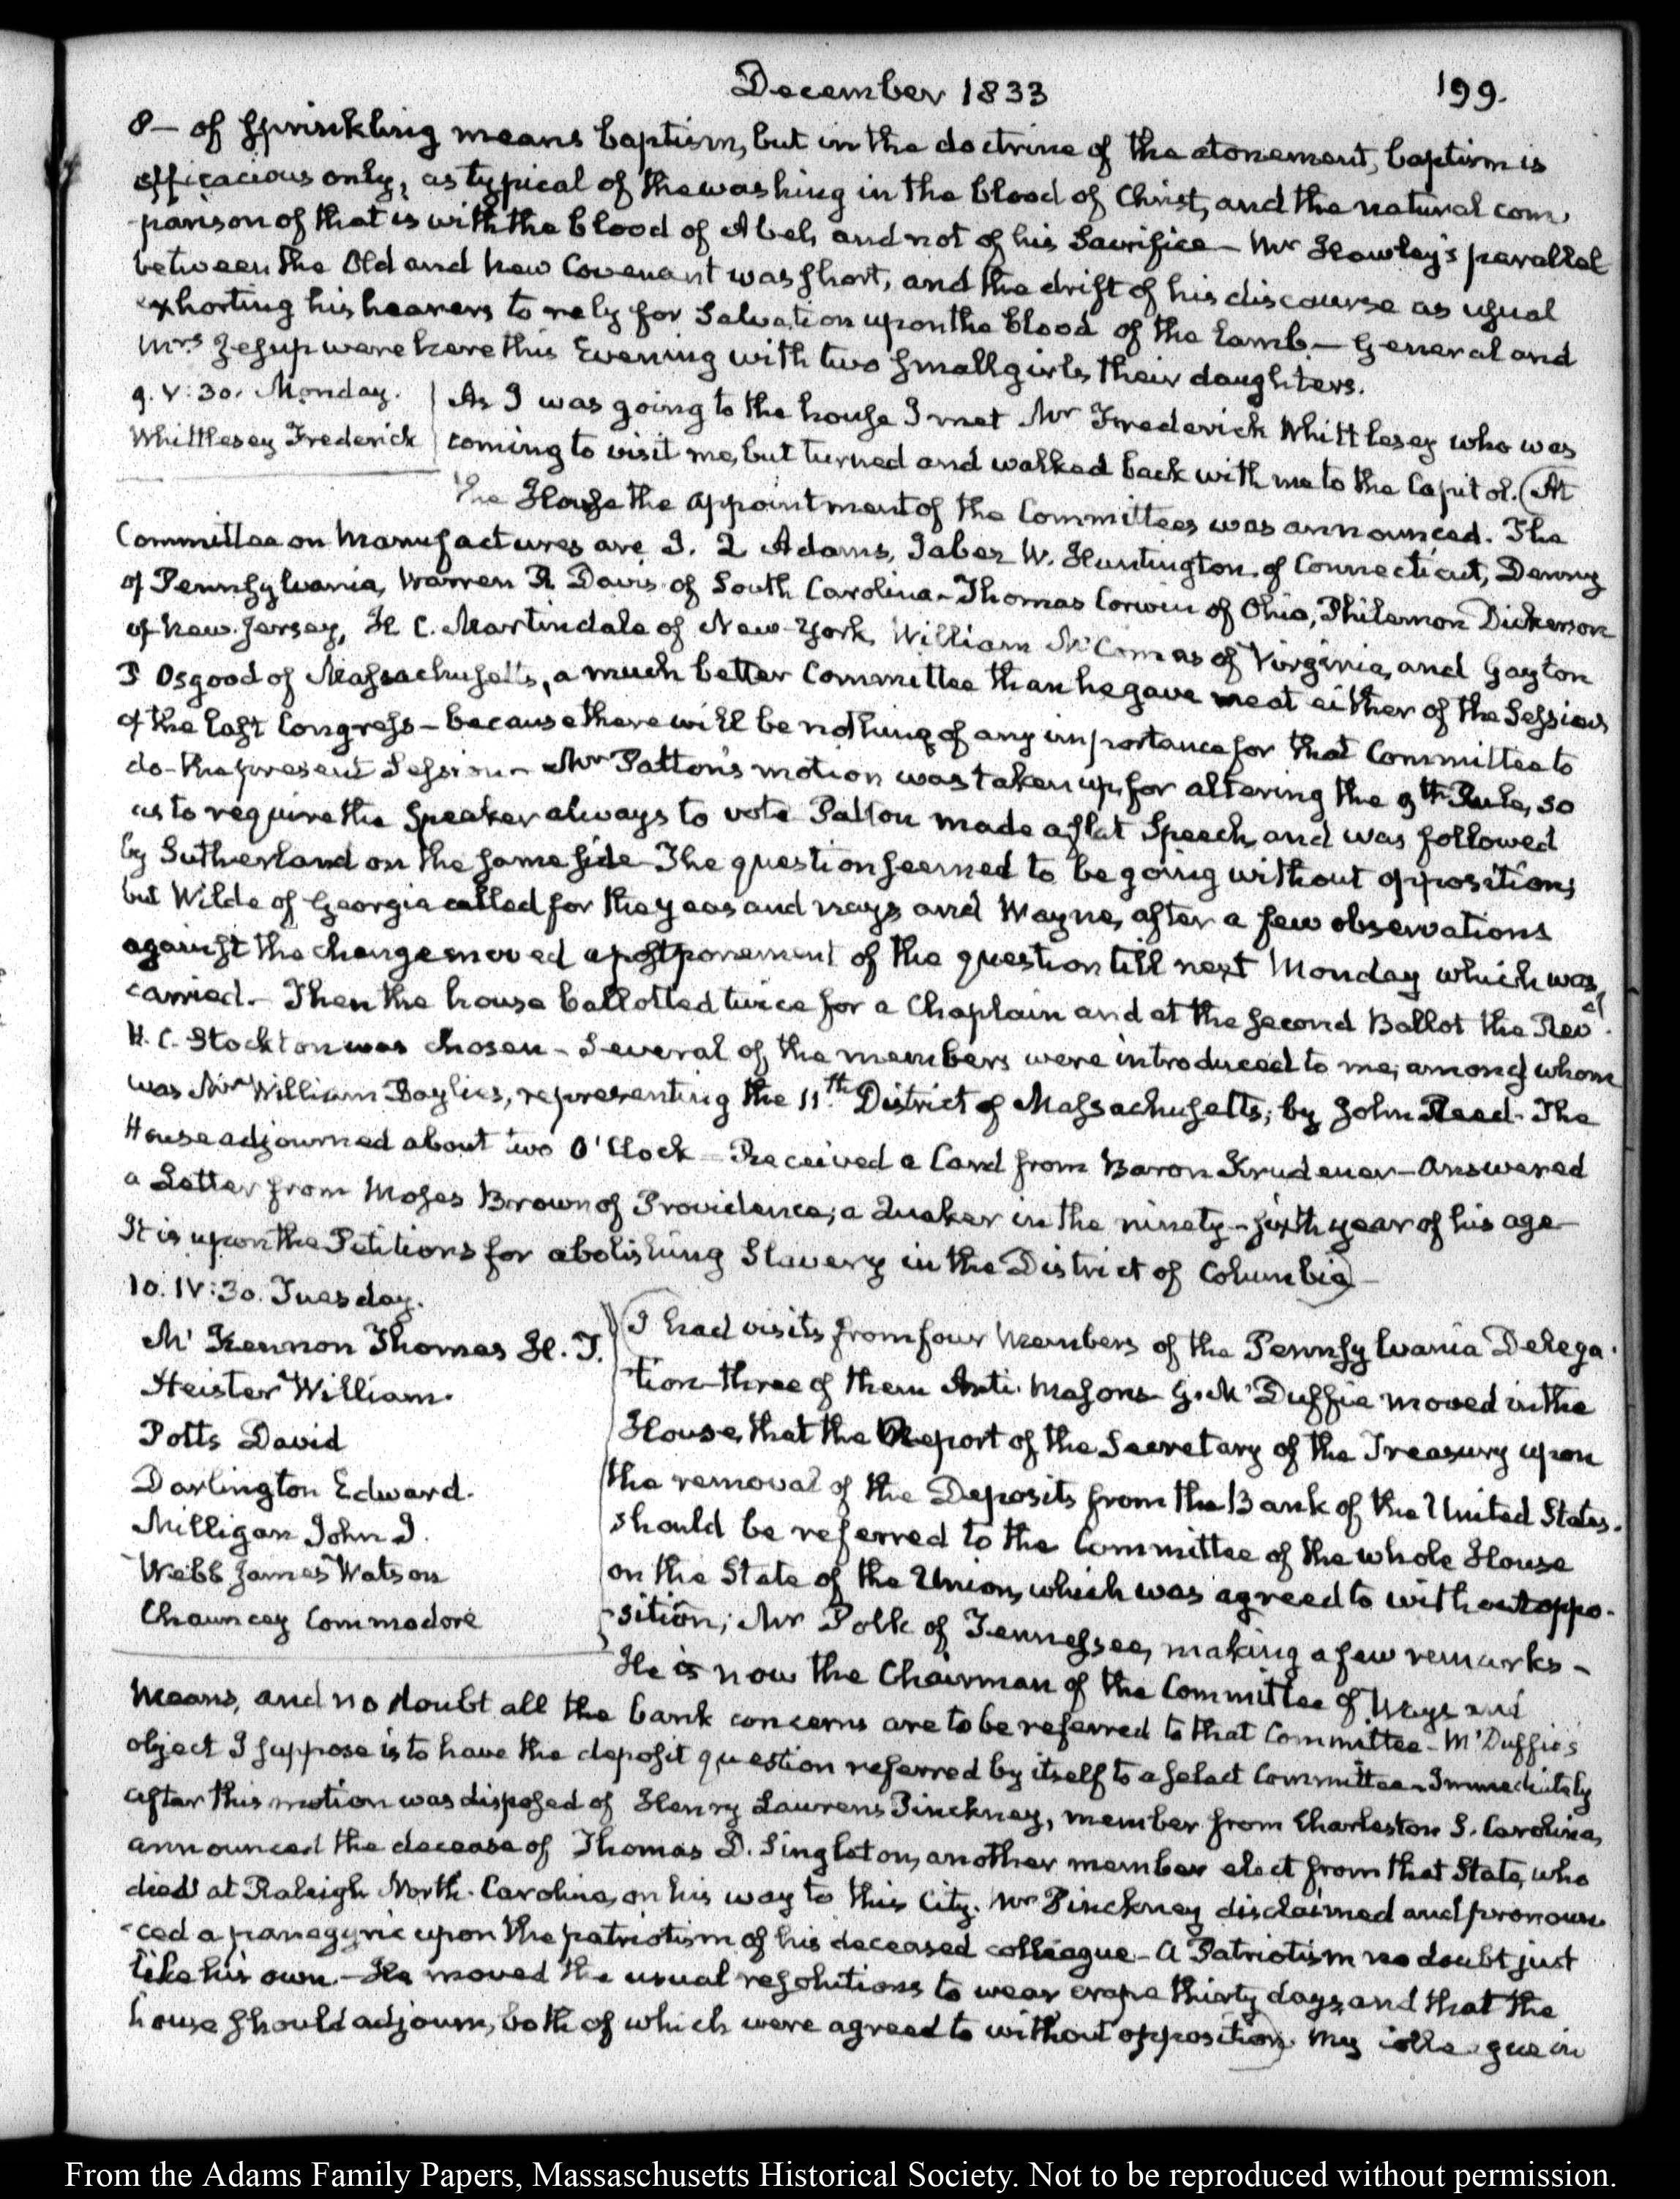 December 1833
199.
8 — of sprinkling means baptism, but in the doctrine of the atonement, baptism is
efficacious only, as typical of the washing in the blood of Christ, and the natural com-
parison of that is with the blood of Abel, and not of his Sacrifice — Mr Hawley's parallel
between the Old and New Covenant was short, and the drift of his discourse as usual
exhorting his hearers to rely for Salvation upon the blood of the Lamb — General and
Mrs Jesup were here this Evening with two small girls, their daughters.
9. V:30. Monday.
Whittlesey Frederick
As I was going to the house I met Mr Frederick Whittlesey who was
coming to visit me, but turned and walked back with me to the Capitol. (At
the House the appointment of the Committees was announced. The
Committee on Manufactures are J. Q Adams, Jabez W. Huntington of Connecticut, Denny
of Pennsylvania, Warren R Davis of South Carolina — Thomas Corwin of Ohio, Philemon Dickerson
of New-Jersey, H C. Martindale of New-York, William McComas of Virginia, and Gayton
P Osgood of Massachusetts, a much better Committee than he gave me at either of the Sessions
of the last Congress — because there will be nothing of any importance for that Committee to
do the present Session — Mr Patton's motion was taken up, for altering the 9th Rule, so
as to require the Speaker always to vote Patton made a flat Speech, and was followed
by Sutherland on the same side — The question seemed to be going without opposition;
but Wilde of Georgia called for the yeas and nays and Wayne, after a few observations
against the change moved a postponement of the question till next Monday which was
carried. — Then the house ballotted twice for a Chaplain and at the second Ballot the Revd.
H. C. Stockton was chosen — Several of the members were introduced to me; among whom
was Mr William Baylies, representing the 11th District of Massachusetts; by John Reed. The
House adjourned about two O'Clock — Received a Card from Baron Krudener — Answered
a Letter from Moses Brown of Providence; a Quaker in the ninety-sixth year of his age
It is upon the Petitions for abolishing Slavery in the District of Columbia) —
10. IV:30. Tuesday.
McKennon Thomas H. T.
Heister William.
Potts David
Darlington Edward.
Milligan John J.
Webb James Watson
Chauncey Commodore
(I had visits from four Members of the Pennsylvania Delega-
tion — three of them Anti-Masons — G. McDuffie moved in the
House, that the Report of the Secretary of the Treasury upon
the removal of the Deposits from the Bank of the United States.
should be referred to the Committee of the whole House
on the State of the Union, which was agreed to without oppo-
sition; Mr Polk of Tennessee, making a few remarks —
He is now the Chairman of the Committee of Ways and
Means, and no doubt all the bank concerns are to be referred to that Committee — McDuffie's
object I suppose is to have the deposit question referred by itself to a select Committee — Immediately
after this motion was disposed of Henry Laurens Pinckney, member from Charleston S. Carolina,
announced the decease of Thomas D. Singleton, another member elect from that State, who
died at Raleigh North-Carolina, on his way to this City. Mr Pinckney disclaimed and pronoun-
ced a panegyric upon the patriotism of his deceased colleague — A Patriotism no doubt just
like his own — He moved the usual resolutions to wear crape thirty days, and that the
house should adjourn, both of which were agreed to without opposition). My colleague in
From the Adams Family Papers, Massachusetts Historical Society. Not to be reproduced without permission.